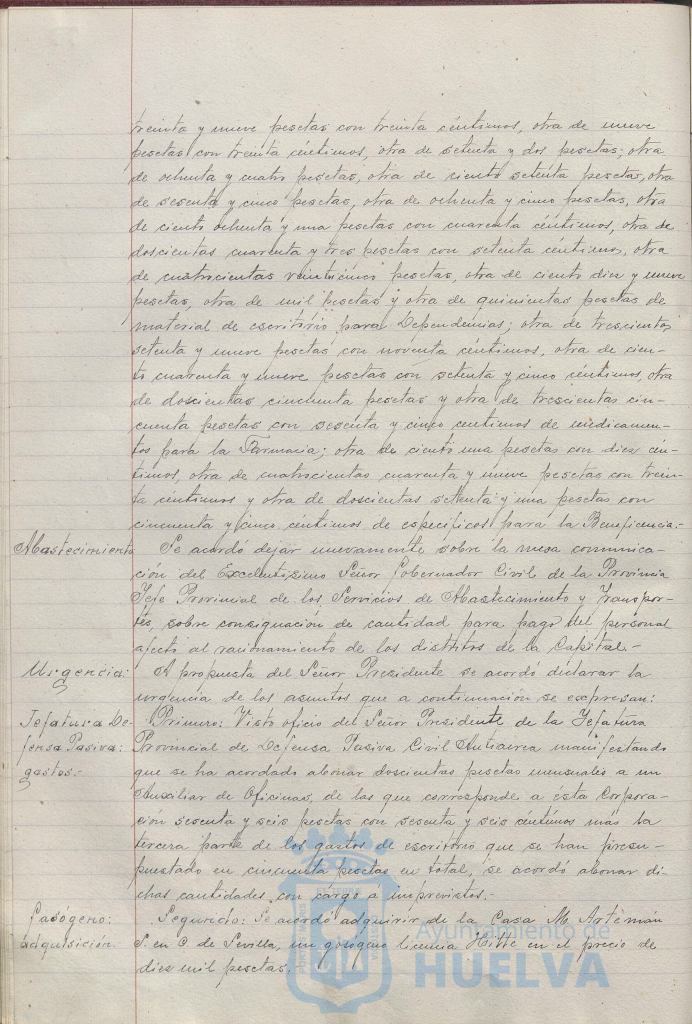 treinta y nueve pesetas con treinta céntimos, otra de nueve
pesetas con treinta céntimos, otra de setenta y dos pesetas, otra
de ochenta y cuatro pesetas, otra de ciento setenta pesetas, otra
de sesenta y cinco pesetas, otra de ochenta y cinco pesetas, otra
de ciento ochenta y una pesetas con cuarenta céntimos, otra de
doscientas cuarenta y tres pesetas con setenta céntimos, otra
de cuatrocientas veinticinco pesetas, otra de ciento diez y nueve
pesetas, otra de mil pesetas y otra de quinientas pesetas de
material de escritorio para Dependencias; otra de trescientas
setenta y nueve pesetas con noventa céntimos, otra de cien-
to cuarenta y nueve pesetas con setenta y cinco céntimos, otra
de doscientas cincuenta pesetas y otra de trescientas cin-
cuenta pesetas con sesenta y cinco centimos de medicamen-
tos para la Farmacia; otra de ciento una pesetas con diez cén-
timos, otra de cuatrocientas cuarenta y nueve pesetas con trein-
ta céntimos y otra de doscientas setenta y una pesetas con
cincuenta y cinco céntimos de específicos para la Beneficencia.-
Abastecimiento Se acordó dejar nuevamente sobre la mesa comunica-
ción del Excelentísimo Señor Gobernador Civil de la Provincia
Jefe Provincial de los Servicios de Abastecimiento y Transpor-
tes, sobre consignación de cantidad para pago del personal
afecto al racionamiento de los distritos de la Capital.-
Urgencia: A propuesta del Señor Presidente se acordó declarar la
urgencia de los asuntos que a continuación se expresan:
Jefatura De- Primero: Visto oficio del Señor Presidente de la Jefatura
fensa Pasiva: Provincial de Defensa Pasiva Civil Antiaerea manifestando
gastos.- que se ha acordado abonar doscientas pesetas mensuales a un
Auxiliar de Oficinas, de las que corresponde a ésta Corpora-
cion sesenta y seis pesetas con sesenta y seis céntimos más la
tercera parte de los gastos de escritorio que se han presu-
puestado en cincuenta pesetas en total, se acordó abonar di-
chas cantidades con cargo a imprevistos.-
Gasógeno: Segundo: Se acordó adquirir de la Casa M. Artéman
adquisición. S. en C. de Sevilla, un gasogeno licencia en el precio de
diez mil pesetas.
Ayuntamiento de
HUELVA